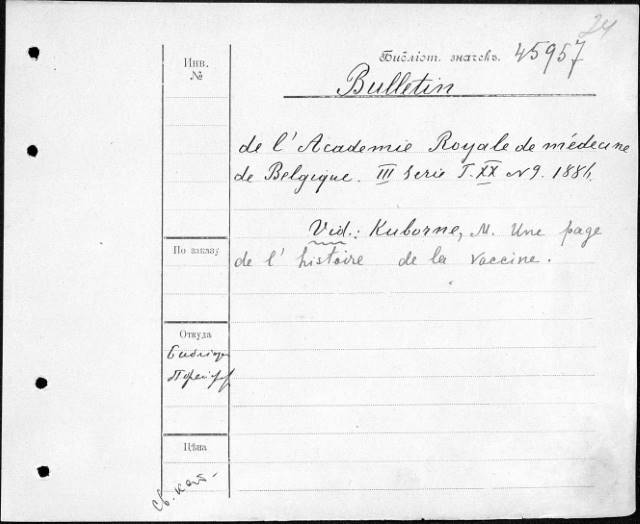 24
Инв.
№
Библіот. значекъ. 45957
Bulletin
de l'Academie Royale de médecine
de Belgique. III Serie T. XX N 9. 1886.
Vid.: Kuborne, M. Une page
de l'histoire de la vaccine.
По заказу
Откуда
Цѣна
св. кат.